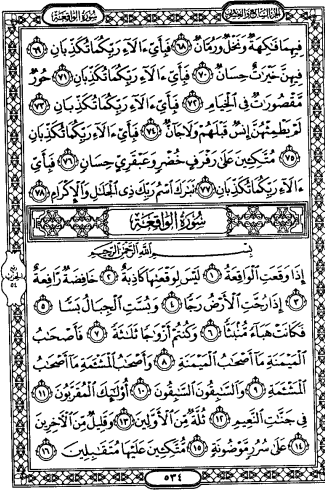 سُورَةُ الوَاقِعَةِ الجُزْءُ السَّابِعُ وَالعِشْرُونَ
فِيهِمَا فَاكِهَةٌ وَنَخْلٌ وَرُمَّانٌ ٦٨ فَبِأَيِّ ءَالَآءِ رَبِّكُمَا تُكَذِّبَانِ ٦٩
فِيهِنَّ خَيْرَاتٌ حِسَانٌ ٧٠ فَبِأَيِّ ءَالَآءِ رَبِّكُمَا تُكَذِّبَانِ ٧١ حُورٌ
مَّقْصُورَاتٌ فِي الْخِيَامِ ٧٢ فَبِأَيِّ ءَالَآءِ رَبِّكُمَا تُكَذِّبَانِ ٧٣
لَمْ يَطْمِثْهُنَّ إِنسٌ قَبْلَهُمْ وَلَا جَانٌّ ٧٤ فَبِأَيِّ ءَالَآءِ رَبِّكُمَا تُكَذِّبَانِ
٧٥ مُتَّكِئِينَ عَلَىٰ رَفْرَفٍ خُضْرٍ وَعَبْقَرِيٍّ حِسَانٍ ٧٦ فَبِأَيِّ
ءَالَآءِ رَبِّكُمَا تُكَذِّبَانِ ٧٧ تَبَارَكَ اسْمُ رَبِّكَ ذِي الْجَلَالِ وَالْإِكْرَامِ ٧٨
سُورَةُ الوَاقِعَةِ
بِسْمِ اللَّهِ الرَّحْمَٰنِ الرَّحِيمِ
إِذَا وَقَعَتِ الْوَاقِعَةُ ١ لَيْسَ لِوَقْعَتِهَا كَاذِبَةٌ ٢ خَافِضَةٌ رَّافِعَةٌ
٣ إِذَا رُجَّتِ الْأَرْضُ رَجًّا ٤ وَبُسَّتِ الْجِبَالُ بَسًّا ٥
فَكَانَتْ هَبَآءً مُّنۢبَثًّا ٦ وَكُنتُمْ أَزْوَاجًا ثَلَاثَةً ٧ فَأَصْحَابُ
الْمَيْمَنَةِ مَآ أَصْحَابُ الْمَيْمَنَةِ ٨ وَأَصْحَابُ الْمَشْـَٔمَةِ مَآ أَصْحَابُ
الْمَشْـَٔمَةِ ٩ وَالسَّابِقُونَ السَّابِقُونَ ١٠ أُوْلَٰٓئِكَ الْمُقَرَّبُونَ ١١
فِي جَنَّاتِ النَّعِيمِ ١٢ ثُلَّةٌ مِّنَ الْأَوَّلِينَ ١٣ وَقَلِيلٌ مِّنَ الْآخِرِينَ
١٤ عَلَىٰ سُرُرٍ مَّوْضُونَةٍ ١٥ مُّتَّكِئِينَ عَلَيْهَا مُتَقَابِلِينَ ١٦
٥٣٤